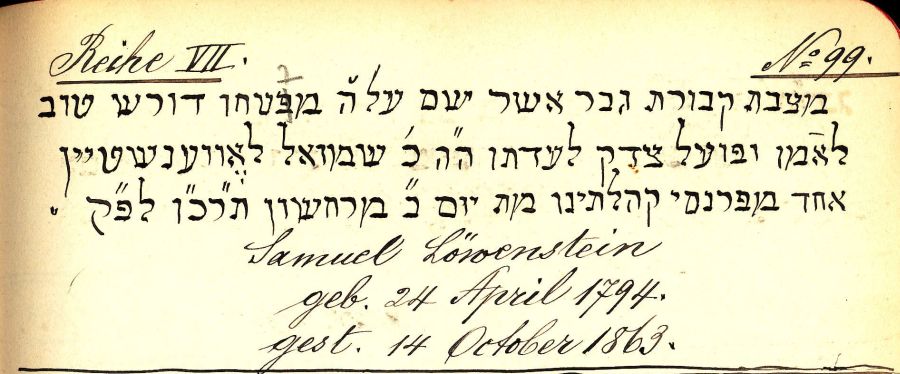 Reihe VII. Nº 99.
מצבת קבורת גבר אשר ישם על ה" מבטחו דורש טוב
לאמו ופועל צדק לעדתו ה"ה כ' שמואל לאווענשטיין
אחד מפרנסי קהלתינו מת יום כ" מרחשון תר"כ"ן לפ"ק.
Samuel Löwenstein
geb. 24 April 1794.
gest. 14 October 1863.